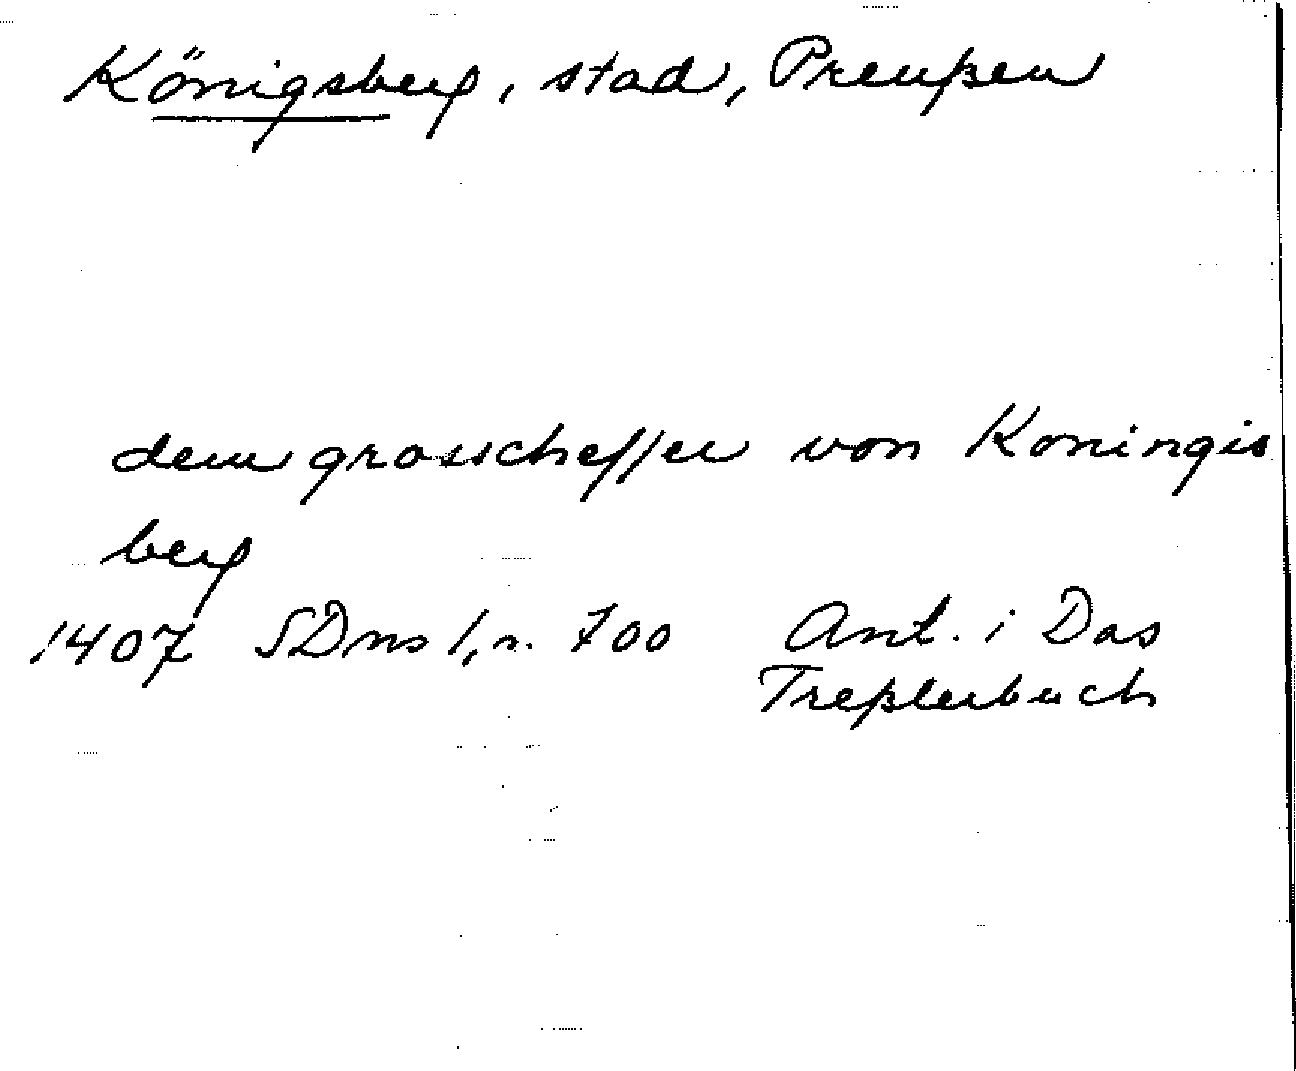 Königsberg, stad, Preußen
dem grosscheffer von Koningis
berg
1407 SDns 1, n. 700 Ant. i Das
Treßlerbuch